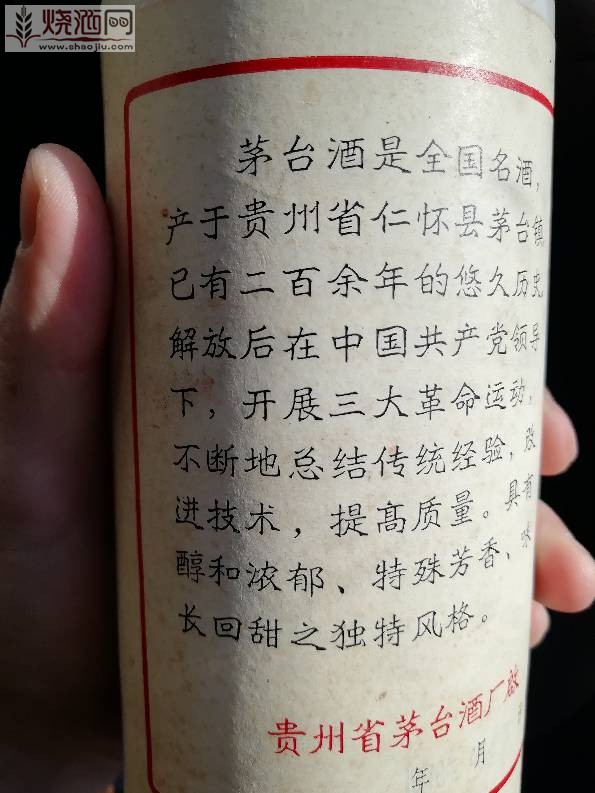 烧酒网
www.shaojiu.com
茅台酒是全国名酒，
产于贵州省仁怀县茅台镇
已有二百余年的悠久历史
解放后在中国共产党领导
下，开展三大革命运动，
不断地总结传统经验，改
进技术，提高质量。具有
醇和浓郁、特殊芳香、味
长回甜之独特风格。
贵州省茅台酒厂啟
年 月